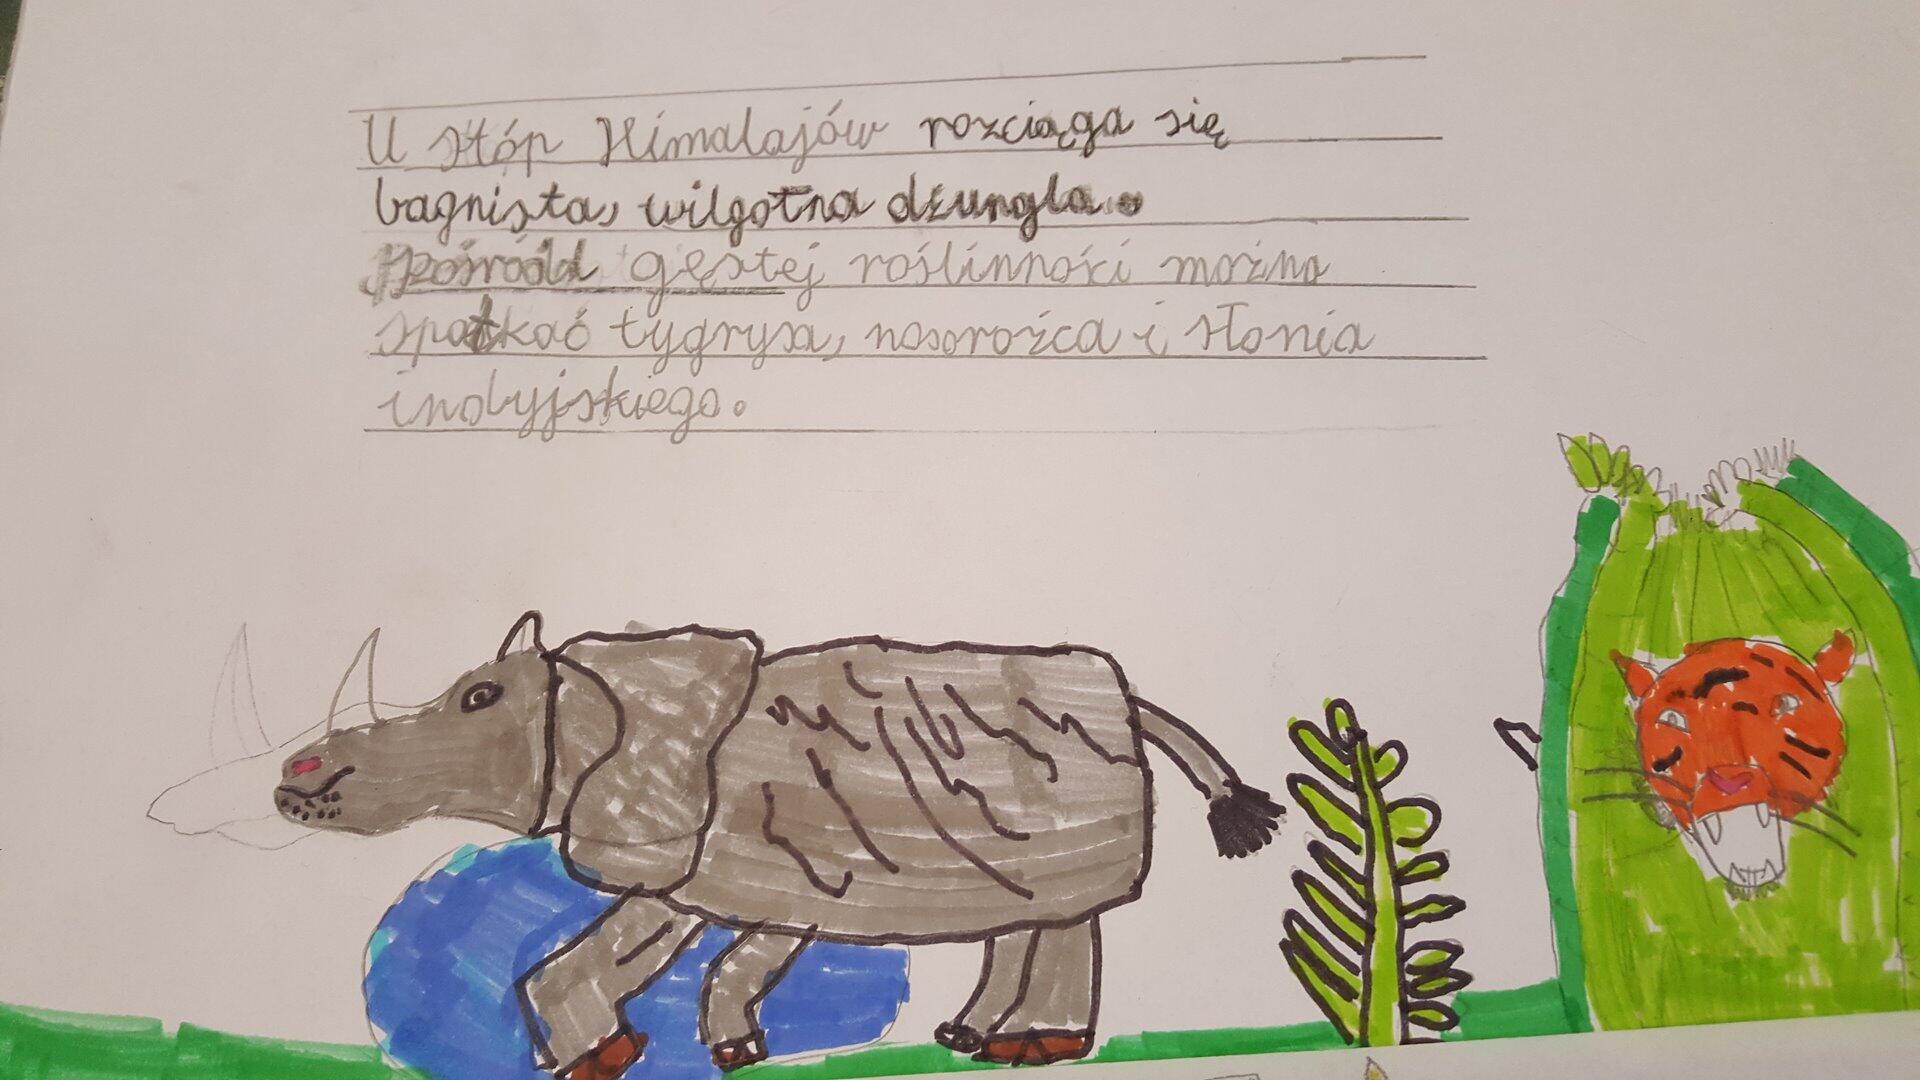 U stóp Himalajów rozciąga się
bagnista, wilgotna dżungla.
pośród gęstej roślinności można
spotkać tygrysa, nosorożca i słonia
indyjskiego.